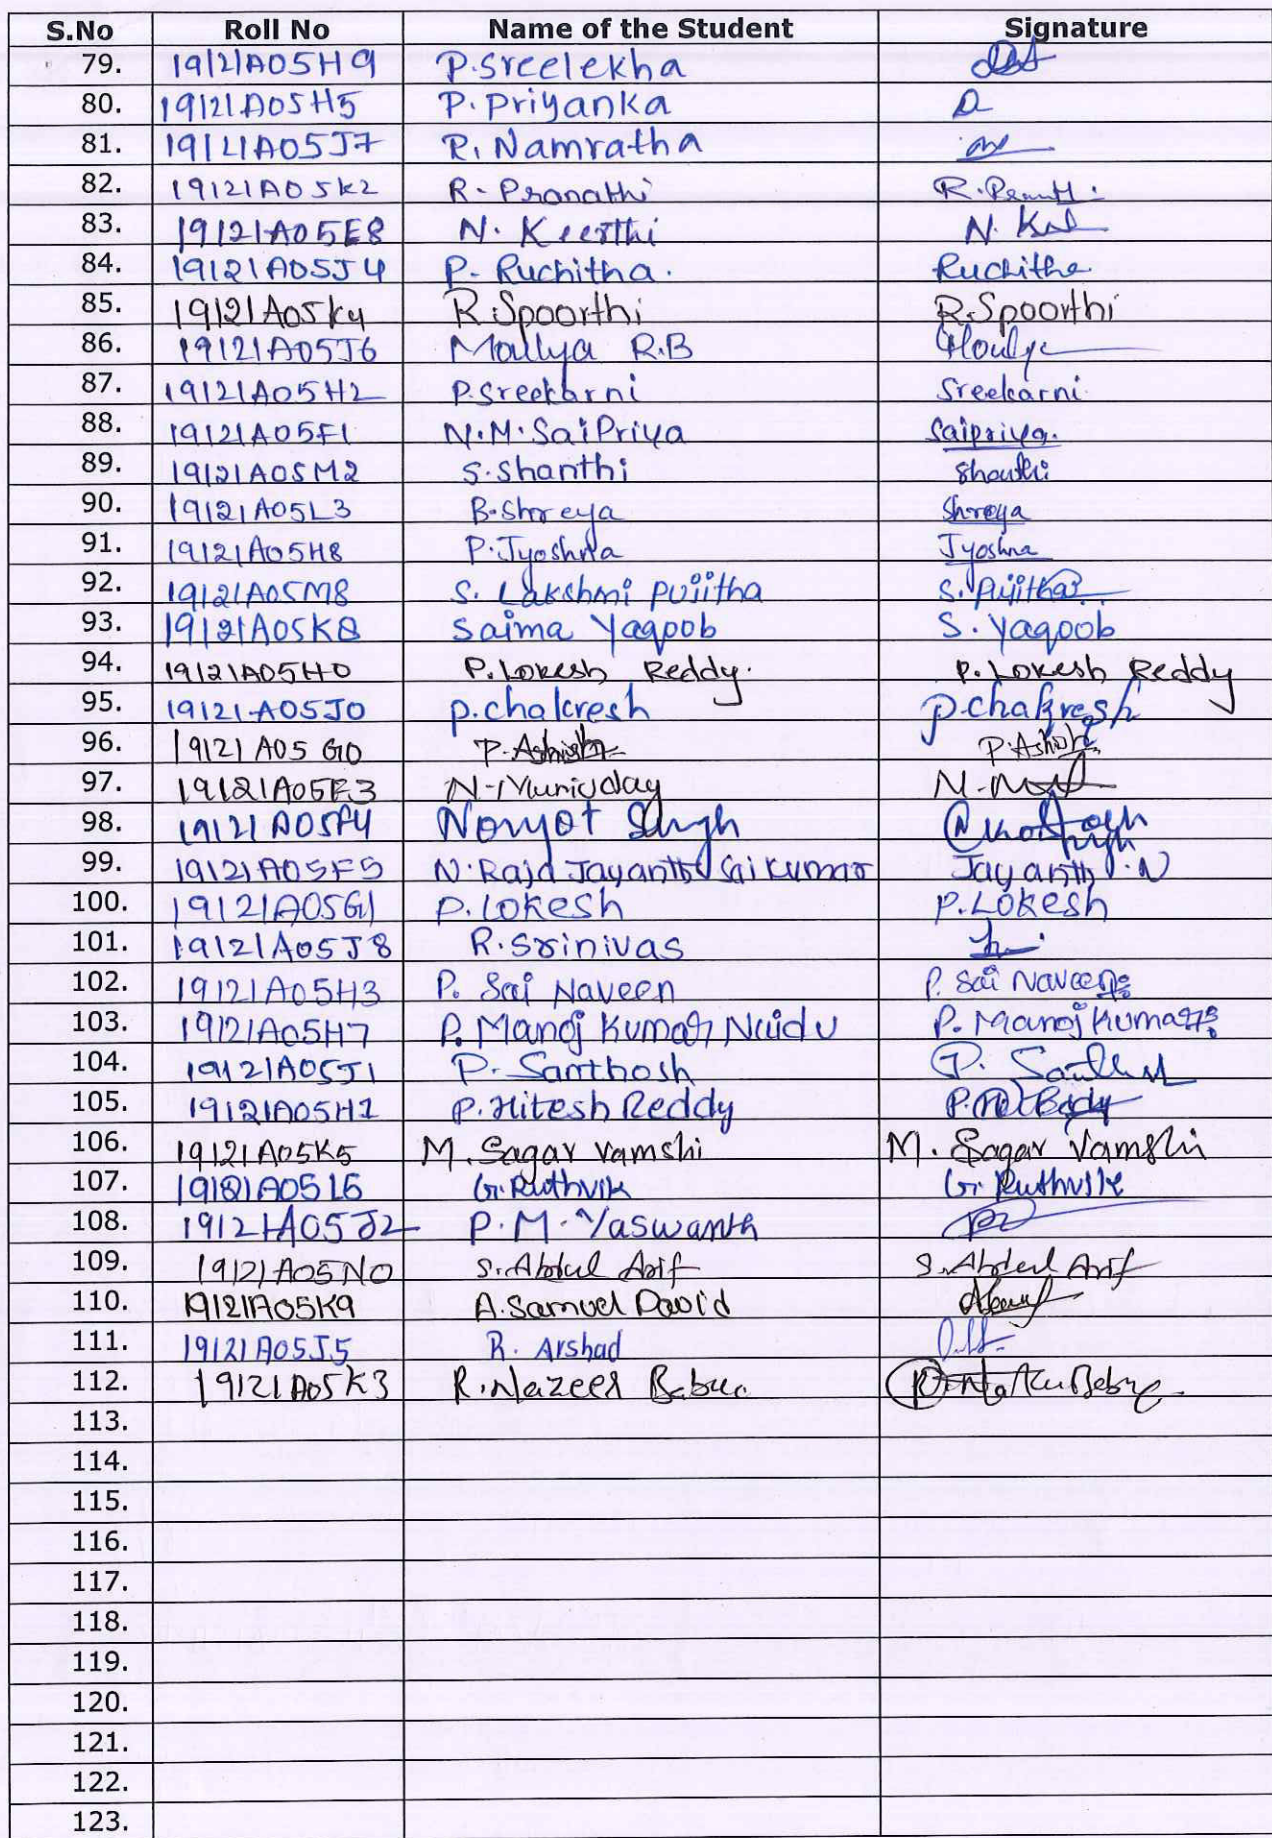 S.No Roll No Name of the Student Signature
79. 19121A05H9 P.Sreelekha
80. 19121A05H5 P. Priyanka
81. 19121A05J7 R. Namratha
82. 19121A05K2 R. Pranathi
83. 19121A05E8 N. Keerthi N.
84. 19121A05J4 P. Ruchitha. Ruchitha
85. 19121A05K4 R.Spoorthi R.Spoorthi
86. 19121A05J6 Moulya R.B Moulya
87. 19121A05H2 P.Sreekarni Sreekarni
88. 19121A05F1 N.M.SaiPriya Saipriya.
89. 19121A05M2 S.Shanthi Shanthi
90. 19121A05L3 B.Shreya Shreya
91. 19121A05H8 P.Jyoshna Jyoshna
92. 19121A05M8 S. Lakshmi Pujitha S. Pujitha
93. 19121A05K8 Saima Yaqoob S. Yaqoob
94. 19121A05H0 P.Lokesh Reddy. P. Lokesh Reddy
95. 19121A05J0 P.chakresh P.chakresh
96. 19121A05G0 P.Ashish P.Ashish
97. 19121A05E3 N.Muniuday
98. 19121A05F4 Singh
99. 19121A05F5 N.Raja Jayanth Sai Kumar Jayanth.N
100. 19121A05G1 P.Lokesh P.Lokesh
101. 19121A05J8 R.Srinivas
102. 19121A05H3 P. Sai Naveen P. Sai Naveen
103. 19121A05H7 P. Manoj Kumar Naidu P. Manoj Kumar
104. 19121A05J1 P. Santhosh P.
105. 19121A05H1 P.Hitesh Reddy
106. 19121A05K5 M. Sagar Vamshi M. Sagar Vamshi
107. G.Ruthvik G. Ruthvik
108. 19121A05J2 P.M.Yaswanth
109. 19121A05N0 S.Abdul Arif S.Abdul Arif
110. 19121A05K9 A.Samuel David
111. 19121A05J5 R. Arshad
112. 19121A05K3 R.Nazeer Babu
113.
114.
115.
116.
117.
118.
119.
120.
121.
122.
123.